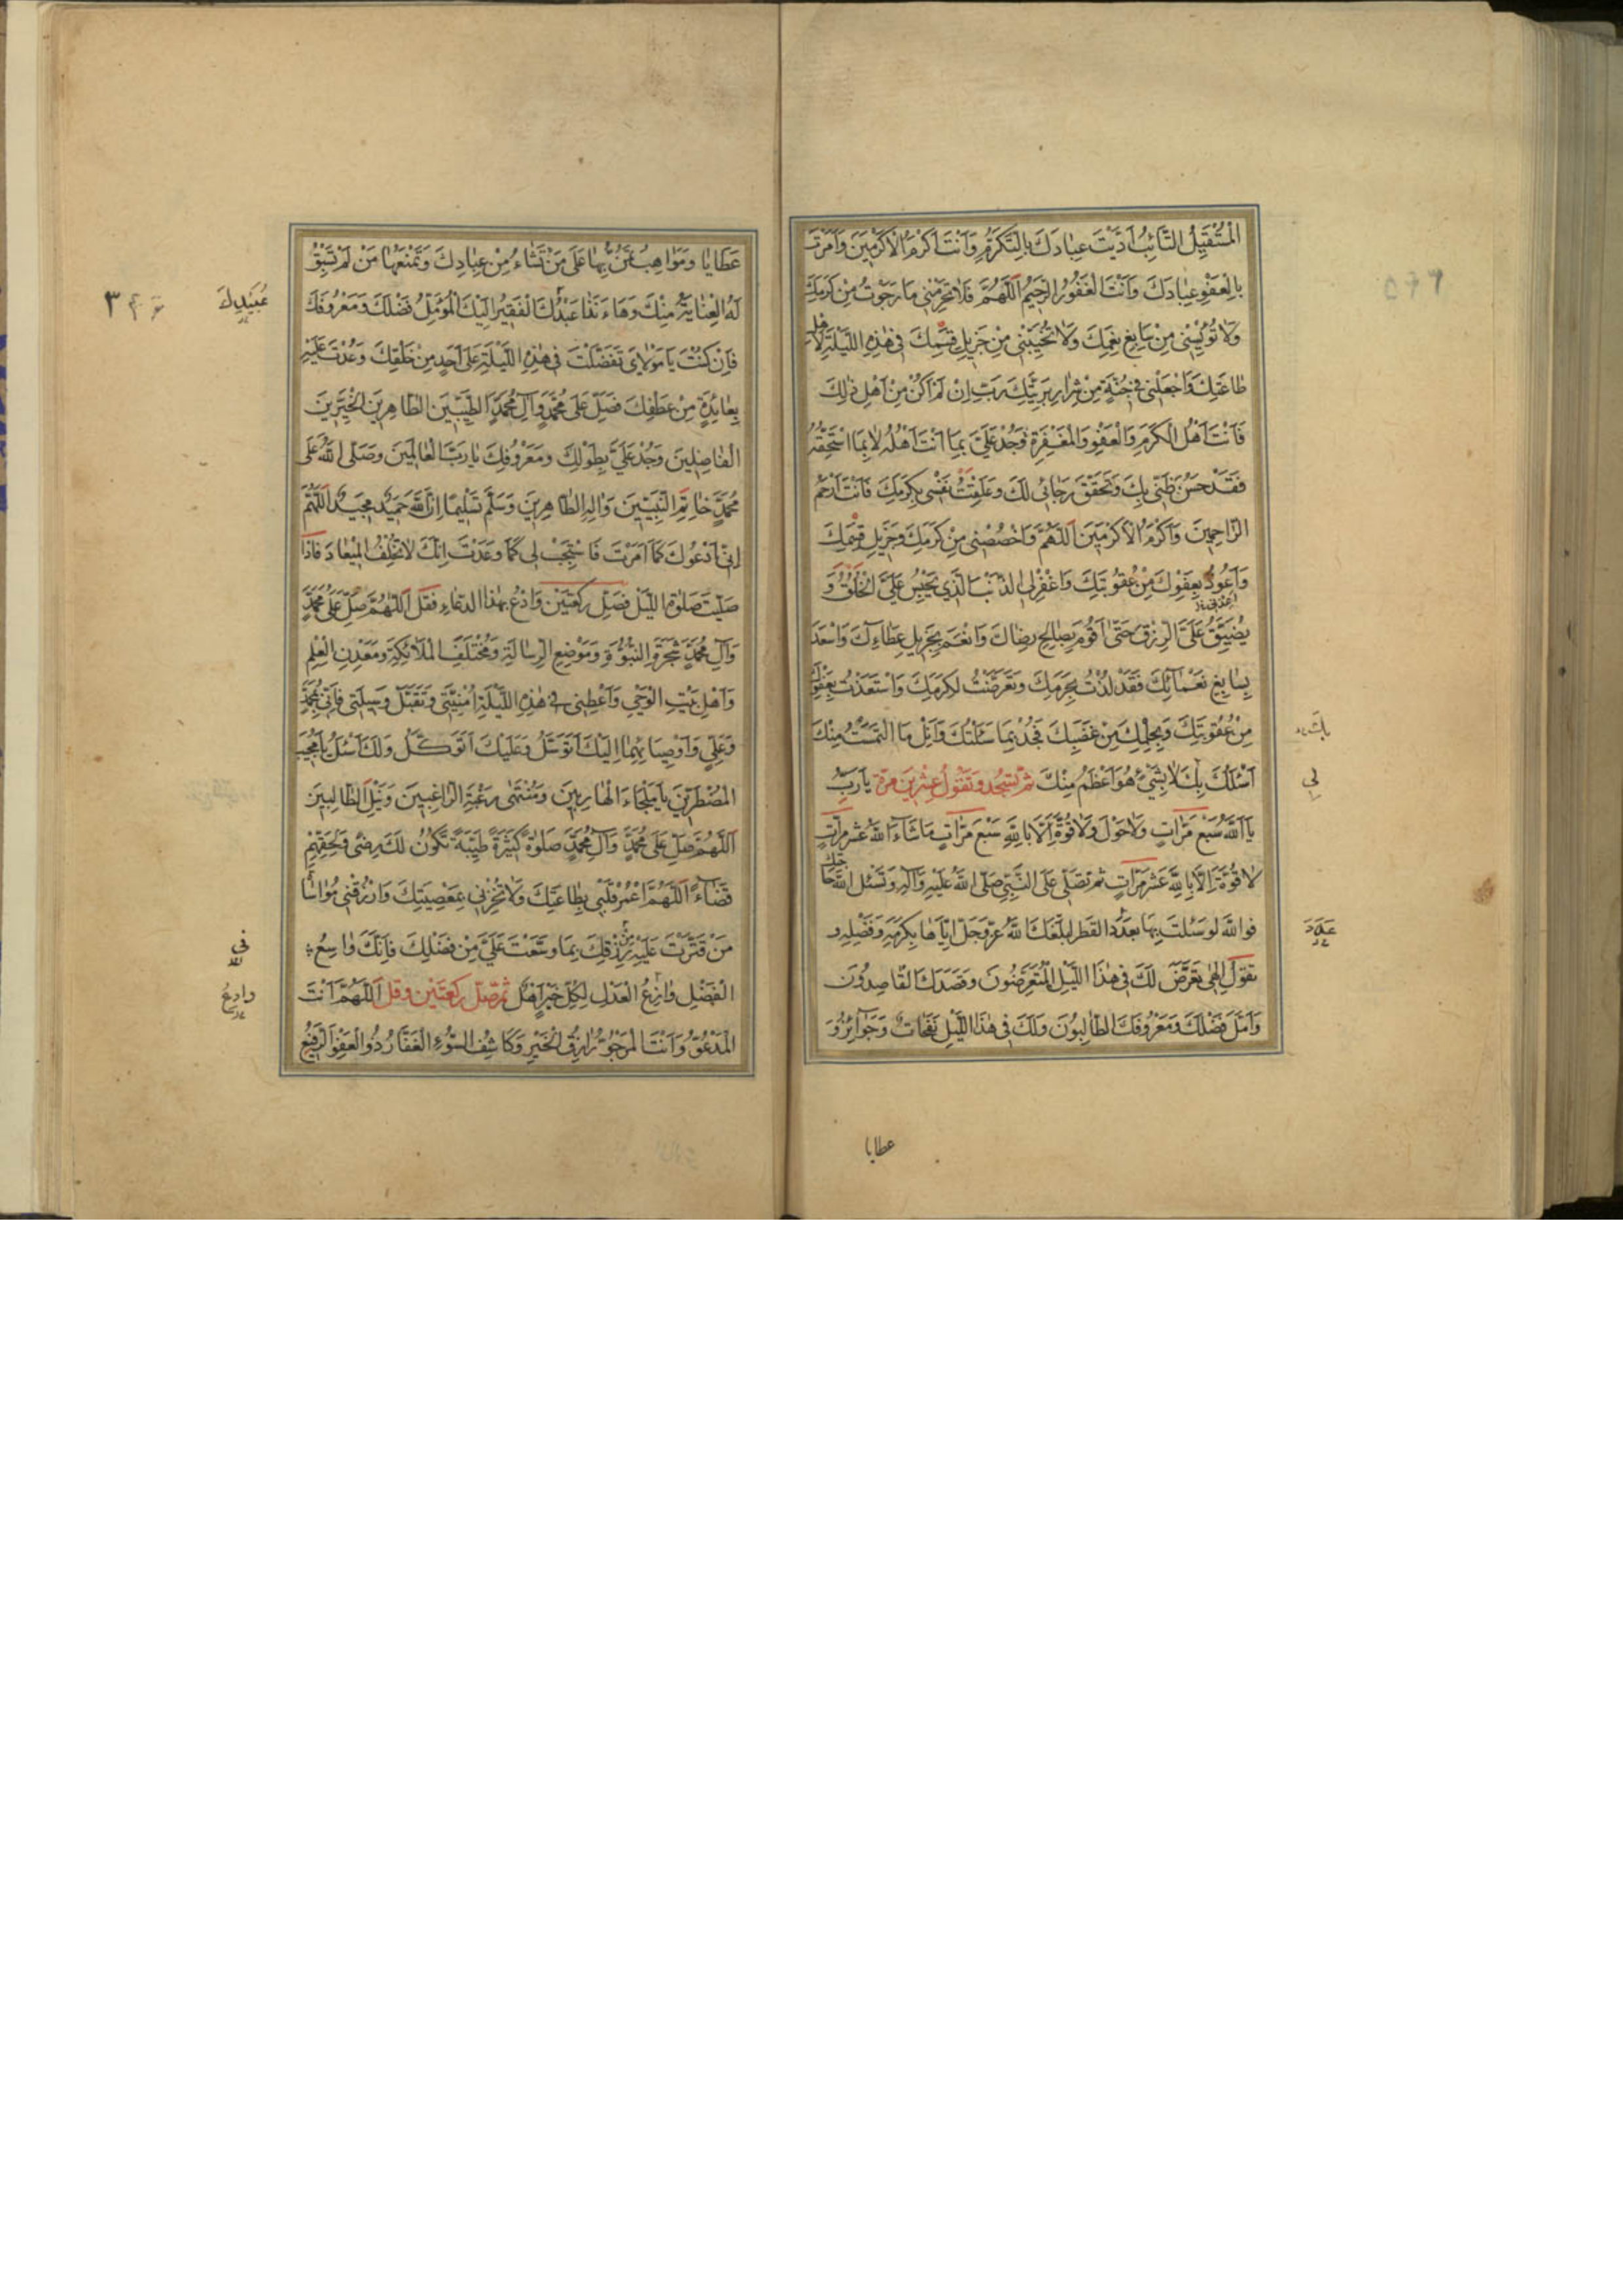 الْمُسْتَقِيلُ التَّائِبُ اَدَّبْتَ عِبَادَكَ بِالتَّكَرُّمِ وَاَنْتَ اَكْرَمُ الْاَكْرَمِينَ وَاَمَرْتَ
بِالْعَفْوِ عِبَادَكَ وَاَنْتَ الْغَفُورُ الرَّحِيمُ اَللّٰهُمَّ فَلَا تَحْرِمْنِى مَا رَجَوْتُ مِنْ كَرَمِكَ
وَلَا تُؤْيِسْنِى مِنْ سَابِغِ نِعَمِكَ وَلَا تُخَيِّبْنِى مِنْ جَزِيلِ قِسَمِكَ فِى هٰذِهِ اللَّيْلَةِ لِاَهْلِ
طَاعَتِكَ وَاجْعَلْنِى فِى جُنَّةٍ مِنْ شِرَارِ بَرِيَّتِكَ رَبِّ اِنْ لَمْ اَكُنْ مِنْ اَهْلِ ذٰلِكَ
فَاَنْتَ اَهْلُ الْكَرَمِ وَالْعَفْوِ وَالْمَغْفِرَةِ وَجُدْ عَلَىَّ بِمَا اَنْتَ اَهْلُهُ لَا بِمَا اسْتَحِقُّهُ
فَقَدْ حَسُنَ ظَنِّى بِكَ وَتَحَقَّقَ رَجَائِى لَكَ وَعَلِقَتْ نَفْسِى بِكَرَمِكَ فَاَنْتَ اَرْحَمُ
الرَّاحِمِينَ وَاَكْرَمُ الْاَكْرَمِينَ اَللّٰهُمَّ وَاخْصُصْنِى مِنْ كَرَمِكَ وَجَزِيلِ قِسَمِكَ
وَاَعُوذُ بِعَفْوِكَ مِنْ عُقُوبَتِكَ وَاغْفِرْ لِىَ الذَّنْبَ الَّذِى يَحْبِسُ عَلَىَّ الْخُلُقَ وَ
يُضَيِّقُ عَلَىَّ الرِّزْقَ حَتّٰى اَقُومَ بِصَالِحِ رِضَاكَ وَاَنْعَمَ بِجَزِيلِ عَطَاءِكَ وَاَسْعَدَ
بِسَابِغِ نَعْمَائِكَ فَقَدْ لُذْتُ بِحَرَمِكَ وَتَعَرَّضْتُ لِكَرَمِكَ وَاسْتَعَذْتُ بِعَفْوِكَ
مِنْ عُقُوبَتِكَ وَبِحِلْمِكَ مِنْ غَضَبِكَ فَجُدْ بِمَا سَئَلْتُكَ وَاَنِلْ مَا الْتَمَسْتُ مِنْكَ
بِكَ
اَسْئَلُكَ بِكَ لَا بِشَىْءٍ هُوَ اَعْظَمُ مِنْكَ ثُمَّ تَسْجُدُ وَتَقُولُ عِشْرِينَ مَرَّةً يَا رَبِّ
لى
يَا اَللّٰهُ سَبْعَ مَرَّاتٍ وَلَا حَوْلَ وَلَا قُوَّةَ اِلَّا بِاللّٰهِ سَبْعَ مَرَّاتٍ مَا شَاءَ اللّٰهُ عَشْرَ مَرَّاتٍ
لَا قُوَّةَ اِلَّا بِاللّٰهِ عَشْرَ مَرَّاتٍ ثُمَّ تُصَلِّى عَلَى النَّبِىِّ صَلَّى اللّٰهُ عَلَيْهِ وَآلِهِ وَتَسْئَلُ اللّٰهَ حَاجَتَكَ
فَوَاللّٰهِ لَوْ سَئَلْتَ بِهَا بِعَدَدِ الْقَطْرِ لَبَلَّغَكَ اللّٰهُ عَزَّ وَجَلَّ اِيَّاهَا بِكَرَمِهِ وَفَضْلِهِ وَ
عَدَدَ
تَقُولُ اِلٰهِى تَعَرَّضَ لَكَ فِى هٰذَا اللَّيْلِ الْمُتَعَرِّضُونَ وَقَصَدَكَ الْقَاصِدُونَ
وَاَمَّلَ فَضْلَكَ وَمَعْرُوفَكَ الطَّالِبُونَ وَلَكَ فِى هٰذَا اللَّيْلِ نَفَحَاتٌ وَجَوَائِزُ وَ
عطايا
عَطَايَا وَمَوَاهِبُ تَمُنُّ بِهَا عَلَى مَنْ تَشَاءُ مِنْ عِبَادِكَ وَتَمْنَعُهَا مَنْ لَمْ تَسْبِقْ
لَهُ الْعِنَايَةُ مِنْكَ وَهَا ءَنَذَا عَبْدُكَ الْفَقِيرُ اِلَيْكَ الْمُؤَمِّلُ فَضْلَكَ وَمَعْرُوفَكَ
عُبَيْدُكَ
فَاِنْ كُنْتَ يَا مَوْلَاىَ تَفَضَّلْتَ فِى هٰذِهِ اللَّيْلَةِ عَلَى اَحَدٍ مِنْ خَلْقِكَ وَعُدْتَ عَلَيْهِ
بِعَائِدَةٍ مِنْ عَطْفِكَ فَصَلِّ عَلَى مُحَمَّدٍ وَآلِ مُحَمَّدٍ الطَّيِّبِينَ الطَّاهِرِينَ الْخَيِّرِينَ
الْفَاضِلِينَ وَجُدْ عَلَىَّ بِطَوْلِكَ وَمَعْرُوفِكَ يَا رَبَّ الْعَالَمِينَ وَصَلَّى اللّٰهُ عَلَى
مُحَمَّدٍ خَاتَمِ النَّبِيِّينَ وَآلِهِ الطَّاهِرِينَ وَسَلَّمَ تَسْلِيمًا اِنَّ اللّٰهَ حَمِيدٌ مَجِيدٌ اَللّٰهُمَّ
اِنِّى اَدْعُوكَ كَمَا اَمَرْتَ فَاسْتَجِبْ لِى كَمَا وَعَدْتَ اِنَّكَ لَا تُخْلِفُ الْمِيعَادَ فَاِذَا
صَلَّيْتَ صَلٰوةَ اللَّيْلِ فَصَلِّ رَكْعَتَيْنِ وَادْعُ بِهٰذَا الدُّعَاءِ فَقُلْ اَللّٰهُمَّ صَلِّ عَلَى مُحَمَّدٍ
وَآلِ مُحَمَّدٍ شَجَرَةِ النُّبُوَّةِ وَمَوْضِعِ الرِّسَالَةِ وَمُخْتَلَفِ الْمَلَائِكَةِ وَمَعْدِنِ الْعِلْمِ
وَاَهْلِ بَيْتِ الْوَحْىِ وَاَعْطِنِى فِى هٰذِهِ اللَّيْلَةِ اُمْنِيَّتِى وَتَقَبَّلْ وَسِيلَتِى فَاِنِّى بِمُحَمَّدٍ
وَعَلِىٍّ وَاَوْصِيَائِهِمَا اِلَيْكَ اَتَوَسَّلُ وَعَلَيْكَ اَتَوَكَّلُ وَلَكَ اَسْئَلُ يَا مُجِيبَ
الْمُضْطَرِّينَ يَا مَلْجَاءَ الْهَارِبِينَ وَمُنْتَهٰى رَغْبَةِ الرَّاغِبِينَ وَنَيْلَ الطَّالِبِينَ
اَللّٰهُمَّ صَلِّ عَلَى مُحَمَّدٍ وَآلِ مُحَمَّدٍ صَلٰوةً كَثِيرَةً طَيِّبَةً تَكُونُ لَكَ رِضًى وَلِحَقِّهِمْ
قَضَاءً اَللّٰهُمَّ اعْمُرْ قَلْبِى بِطَاعَتِكَ وَلَا تُخْزِنِى بِمَعْصِيَتِكَ وَارْزُقْنِى مُوَاسَاةَ
مَنْ قَتَّرْتَ عَلَيْهِ مِنْ رِزْقِكَ بِمَا وَسَّعْتَ عَلَىَّ مِنْ فَضْلِكَ فَاِنَّكَ وَاسِعُ
فى
الْفَضْلِ وَازِعُ الْعَدْلِ لِكُلِّ خَيْرٍ اَهْلٌ ثُمَّ صَلِّ رَكْعَتَيْنِ وَقُلْ اَللّٰهُمَّ اَنْتَ
وادعُ
الْمَدْعُوُّ وَاَنْتَ الْمَرْجُوُّ رَازِقُ الْخَيْرِ وَكَاشِفُ السُّوءِ الْغَفَّارُ ذُو الْعَفْوِ الرَّفِيعِ